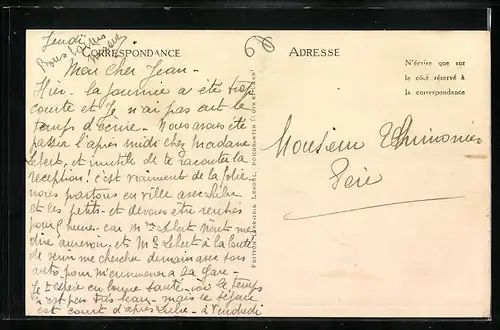 Jeudi
Bons baisers
CORRESPONDANCE
ADRESSE
N'écrire que sur
le côté réservé à
la correspondance
Mon cher Jean -
Hier - la journée a été trop
courte et Je n'ai pas eut le
temps d'écrire - Nous avons été
passer l'après midi chez madame
Lebert, et inutile de te raconter la
reception! c'est vraiment de la folie,
nous partons en ville avec
et les petits - et devons être rentrés
pour heures - car Mme Lebert vient me
dire aurevoir, et Mr Lebert a la bonté
de venir me chercher demain avec son
auto pour m'emmener à la gare -
Je t'espère en bonne santé - ici le temps
n'est pas très beau - mais le séjour
est court d'après - à Vendredi
Monsieur
EDITION - LIBRAIRIE